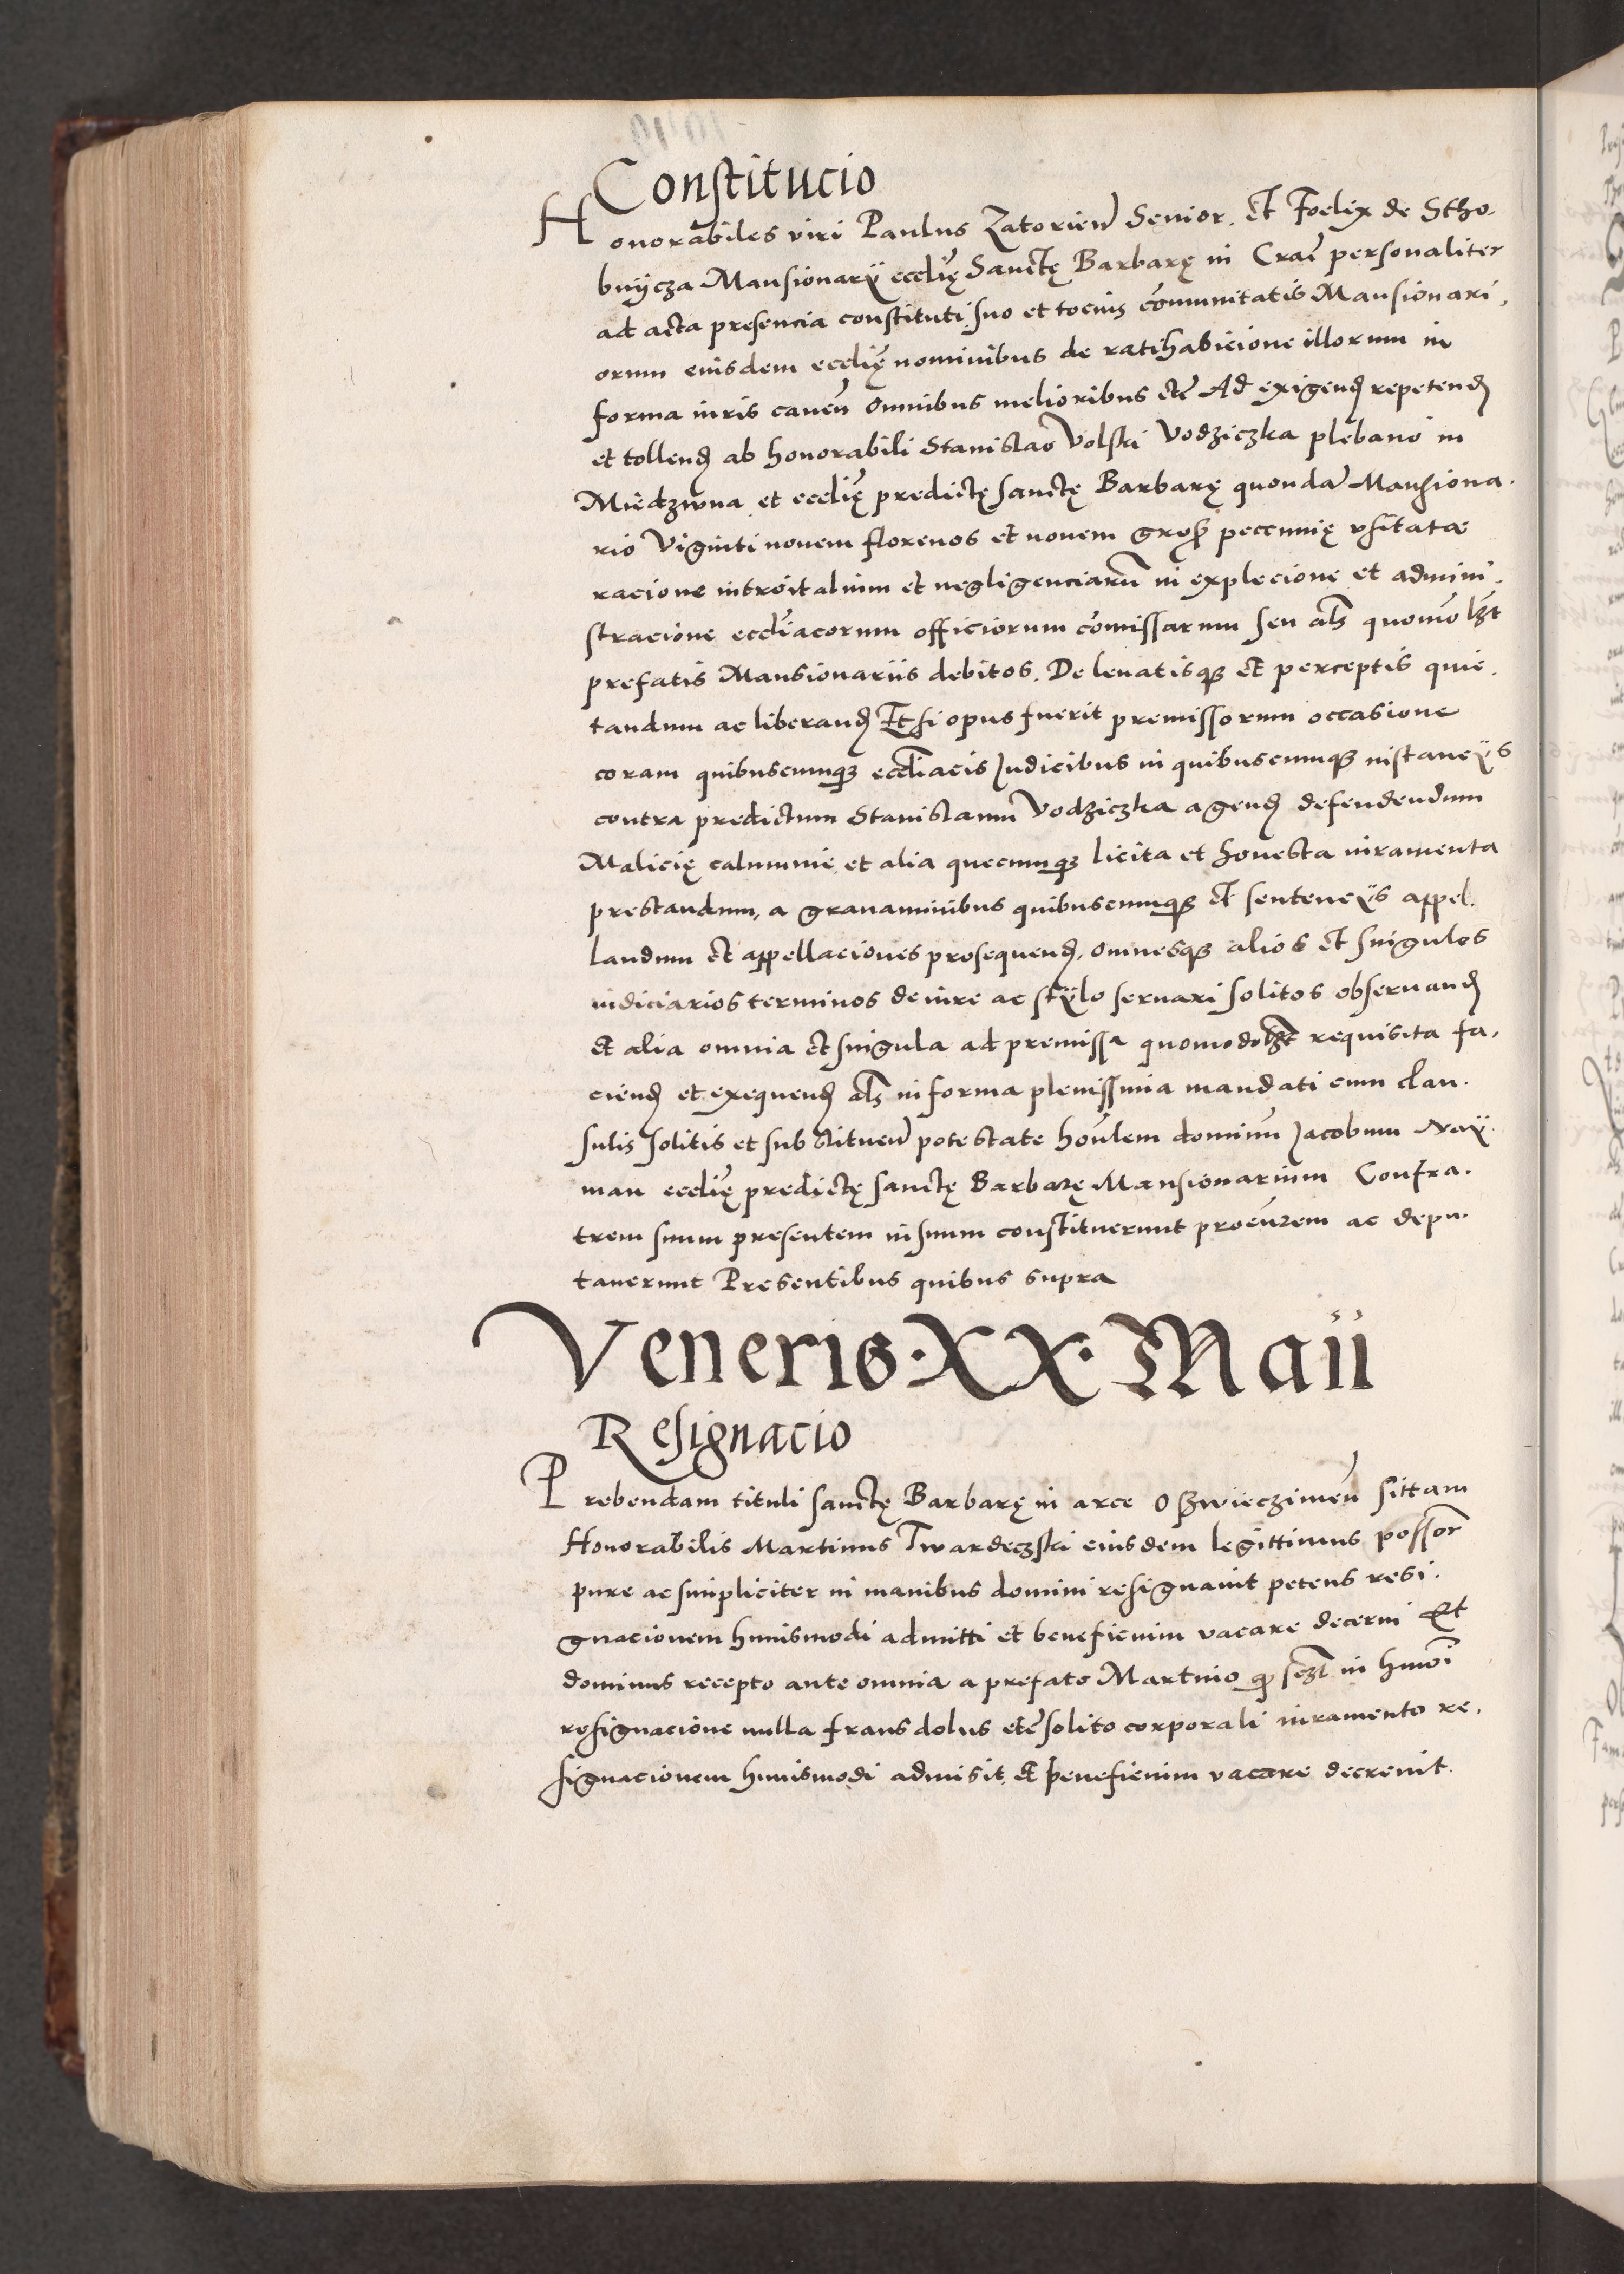 Constitucio
Honorabiles viri Paulus Zatorien Senior. Et Foelix de Stho-
bnijcza Mansionarÿ ecclię Sanctę Barbarę in Crac personaliter
ad acta presencia constituti suo et tocius comunitatis Mansionari-
orum eiusdem ecclię nominibus de ratihabicione illorum in
forma iuris caven Omnibus melioribus etc Ad exigend repetend
et tollend ab honorabili Stanislao Volski Vodziczka plebano in
Miedzwna et ecclię predictę sanctę Barbarę quondam Mansiona-
rio Viginti novem florenos et novem gross peccunię usitatae
racione introitalium et negligenciarum in explecione et admini-
stracione eccliacorum officiorum comissarum seu als quomolbt
prefatis Mansionariis debitos. De levatisque et perceptis quie-
tandum ac liberand Et si opus fuerit premissorum occasione
coram quibuscumque eccliacis Iudicibus in quibuscumque instancÿs
contra predictum Stanislaum Vodziczka agend defendendum
Malicię calumnie et alia quecumque licita et honesta iuramenta
prestandum, a gravaminibus quibuscumque et sentencÿs appel-
landum et appellaciones prosequend, omnesque alios et singulos
iudiciarios terminos de iure ac stÿlo servari solitos observand
et alia omnia et singula ad premissa quomodolbt requisita fa-
ciend et exequend als in forma plenissima mandati cum clau-
sulis solitis et substituen potestate honlem dominum Iacobum Naÿ-
man ecclię predictę sanctę Barbarę Mansionarium Confra-
trem suum presentem in suum constituerunt procurem ac depu-
taverunt Presentibus quibus supra
Veneris · XX · Maii
Resignacio
Prebendam tituli sanctę Barbarę in arce Oszwieczimen sittam
Honorabilis Martinus Twardeczski eiusdem legittimus possor
pure ac simpliciter in manibus domini resignavit petens resi-
gnacionem huiusmodi admitti et beneficium vacare decerni Et
dominus recepto ante omnia a prefato Martino quod in hmoi
resignacione nulla fraus dolus etc solito corporali iuramento re-
signacionem huiusmodi admisit et beneficium vacare decrevit.